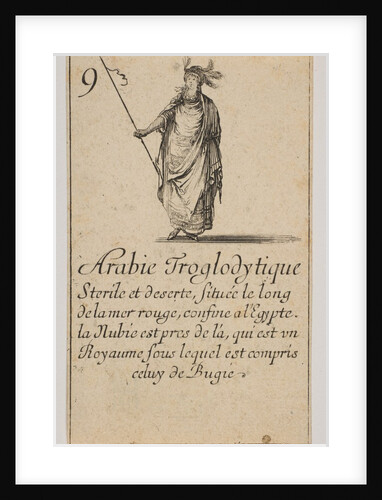 9
Arabie Troglodytique
Sterile et deserte, située le long
de la mer rouge, confine a l'Egypte.
la Nubie est pres de là, qui est vn
Royaume sous lequel est compris
celuy de Bugie